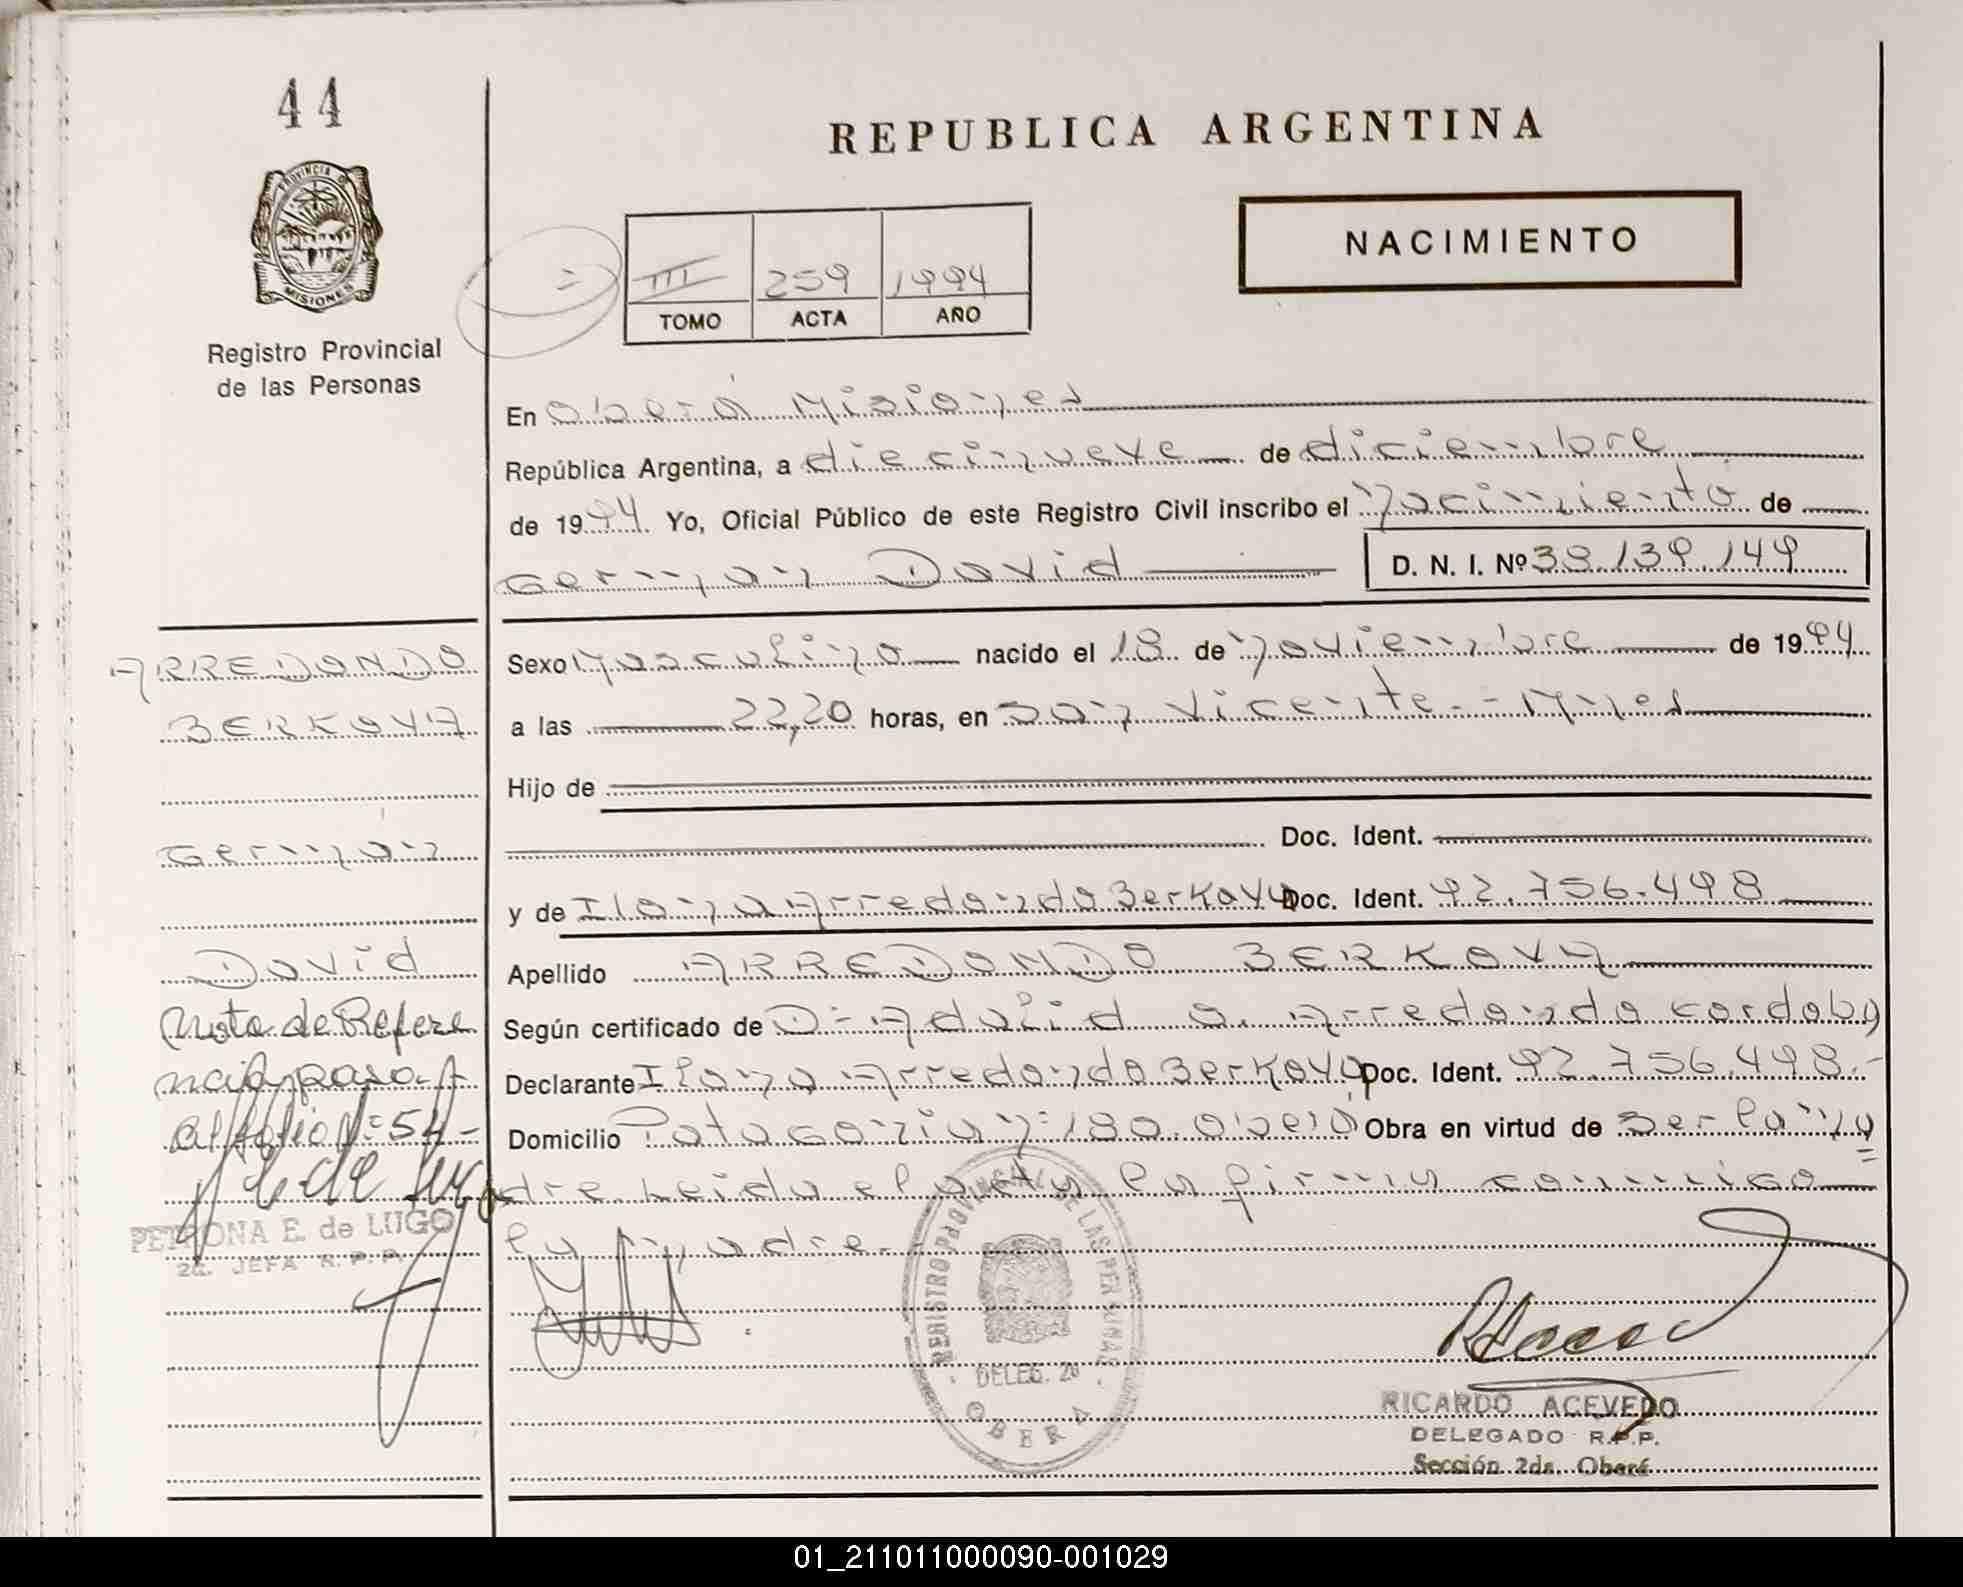 44
REPUBLICA ARGENTINA
PROVINCIA DE
MISIONES
Registro Provincial
de las Personas
NACIMIENTO
III 259 1994
TOMO ACTA AÑO
En Oberá Misiones
República Argentina, a diecinueve de diciembre
de 1994 Yo, Oficial Público de este Registro Civil inscribo el nacimiento de
German David
D. N. I. Nº 38.139.149
ARREDONDO
BERKOVA
German
David
Sexo Masculino nacido el 18 de noviembre de 1994
a las 22,20 horas, en San Vicente.- Mnes
Hijo de
Doc. Ident.
y de Ilana Arredondo Berkova Doc. Ident. 92.756.498
Apellido ARREDONDO BERKOVA
Según certificado de D= Adalid O. Arredondo Cordoba
Declarante Ilana Arredondo Berkova Doc. Ident. 92.756.498.-
Domicilio Patagonia n=180.Oberá Obra en virtud de Ser la ma
dre Leida el acta la firma conmigo
la madre.
Nota de Refere
ncia pasa
al folio Nº 54-
PETRONA E. de LUGO
2a. JEFA R. P. P.
REGISTRO PROVINCIAL DE LAS PERSONAS
DELEG. 2ª
OBERA
RICARDO ACEVEDO
DELEGADO R.P.P.
Sección 2da. Oberá
01_211011000090-001029